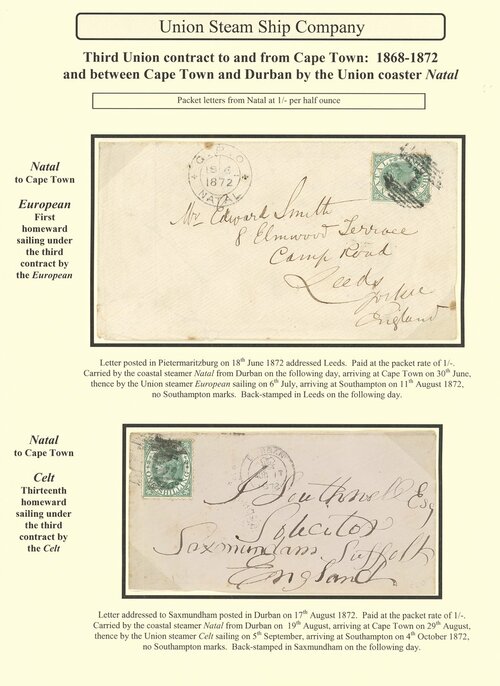 Union Steam Ship Company
Third Union contract to and from Cape Town: 1868-1872
and between Cape Town and Durban by the Union coaster Natal
Packet letters from Natal at 1/- per half ounce
Natal
to Cape Town
European
First
homeward
sailing under
the third
contract by
the European
G.P.O
1872
NATAL
Mr Edward Smith
8 Elmwood Terrace
Camp Road
Leeds
England
Letter posted in Pietermaritzburg on 18th June 1872 addressed Leeds. Paid at the packet rate of 1/-.
Carried by the coastal steamer Natal from Durban on the following day, arriving at Cape Town on 30th June,
thence by the Union steamer European sailing on 6th July, arriving at Southampton on 11th August 1872,
no Southampton marks. Back-stamped in Leeds on the following day.
Natal
to Cape Town
Celt
Thirteenth
homeward
sailing under
the third
contract by
the Celt
SHILLING
J Southwell Esq
Solicitor
Saxmundham Suffolk
England
Letter addressed to Saxmundham posted in Durban on 17th August 1872. Paid at the packet rate of 1/-.
Carried by the coastal steamer Natal from Durban on 19th August, arriving at Cape Town on 29th August,
thence by the Union steamer Celt sailing on 5th September, arriving at Southampton on 4th October 1872,
no Southampton marks. Back-stamped in Saxmundham on the following day.